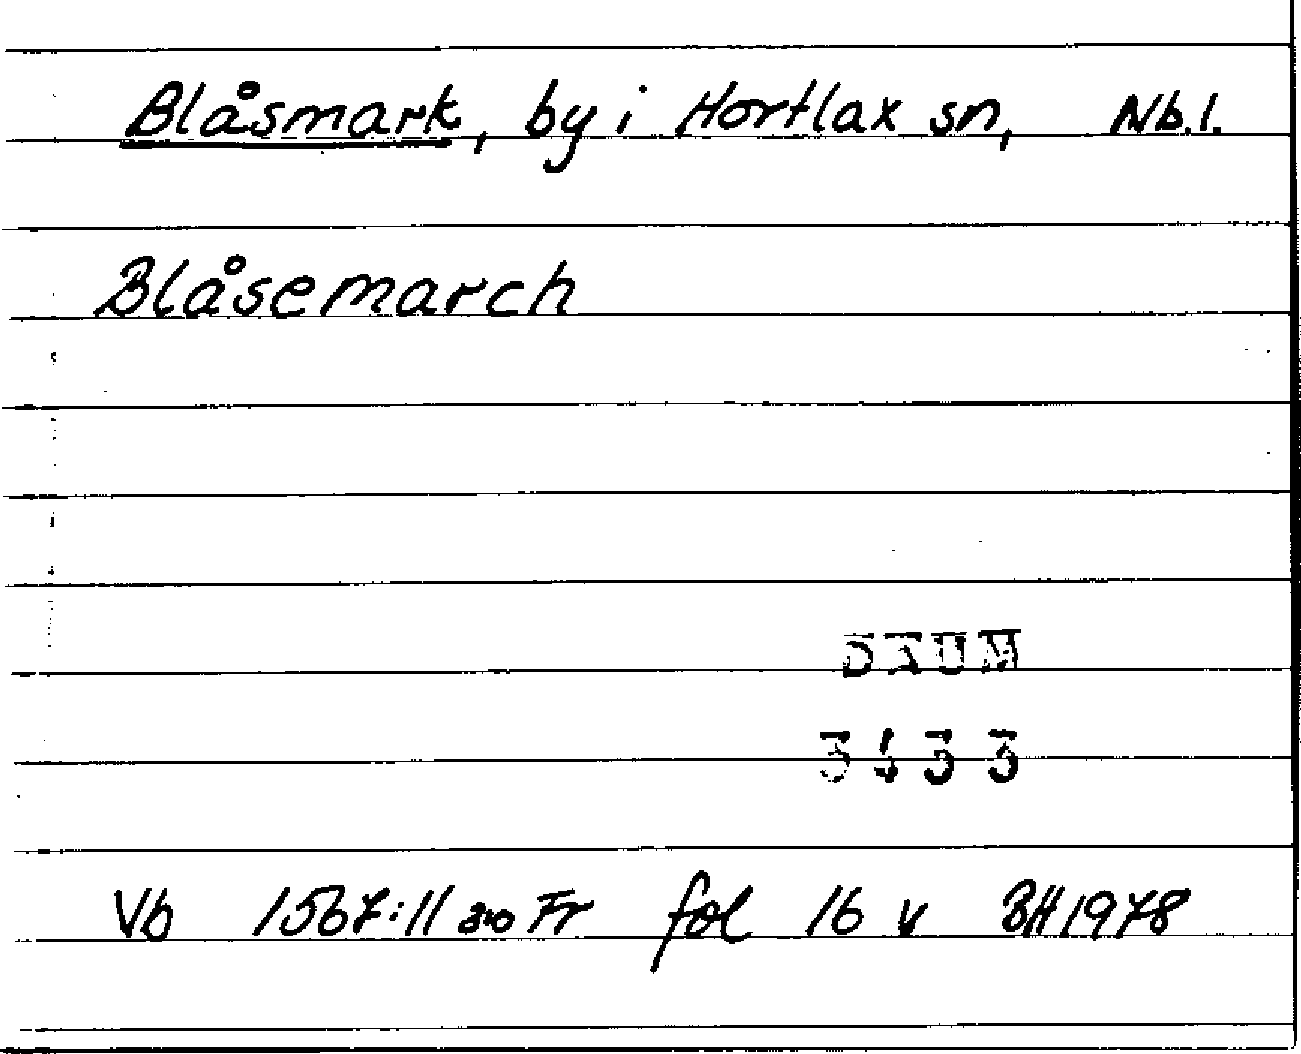 Blåsmark, by i Hortlax sn, Nb.l.
Blåsemarch
DAUM
3433
Vb 1567:11 Fr fol 16 v BH 1978